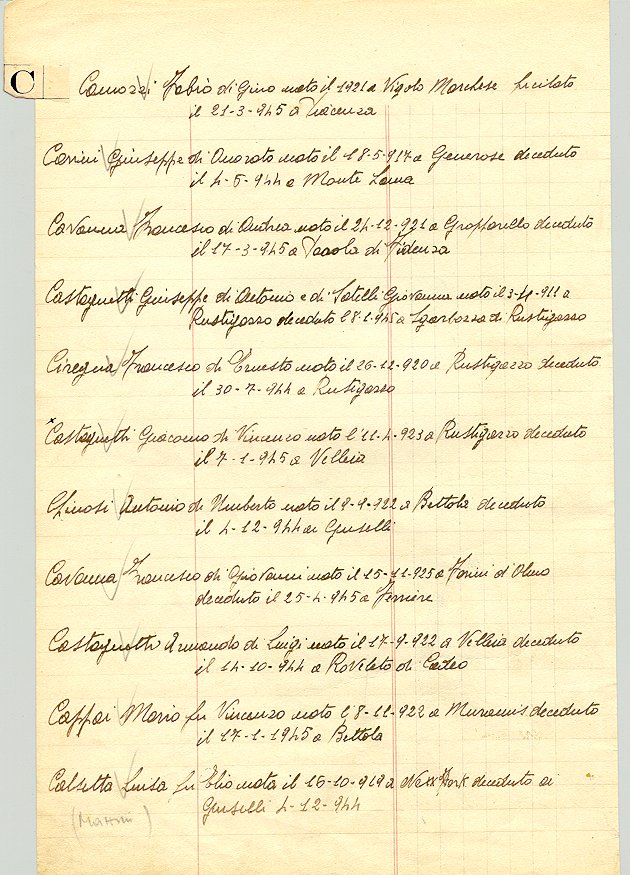 C
Camozzi Fabio di Gino nato il 1921 a Vigolo Marchese fucilato
il 21-3-945 a Piacenza
Carini Giuseppe di Onorato nato il 18-5-917 a Generose deceduto
il 4-5-944 a Monte Lama
Cavanna Francesco di Andrea nato il 24-12-921 a Gropparello deceduto
il 17-3-945 a di Fidenza
Castagnetti Giuseppe di Antonio e di Giovanna nato il 911 a
Rustigazzo deceduto l 8-1-945 a di Rustigasso
Ciregna Francesco di Ernesto nato il 26-12-920 a Rustigazzo deceduto
il 30-7-944 a Rutigasso
x
Castagnetti Giacomo di Vincenzo nato l 11-4-923 a Rustigazzo deceduto
il 7-1-945 a Velleia
Chinosi Antonio di Umberto nato il 9-9-922 a Bettola deceduto
il 4-12-944 ai Guselli
Cavanna Francesco di Giovanni nato il 15-11-925 a Farini d'Olmo
deceduto il 25-4-945 a Ferriere
Castagnetti Armando di Luigi nato il 17-9-922 a Velleia deceduto
il 14-10-944 a Roveleto di Cadeo
Cappai Mario fu Vincenzo nato l 8-11-922 a deceduto
il 17-1-1945 a Bettola
Calzetta Luisa fu Elio nata il 16-10-919 a New York deceduto ai
Guselli 4-12-944
(Mattini)